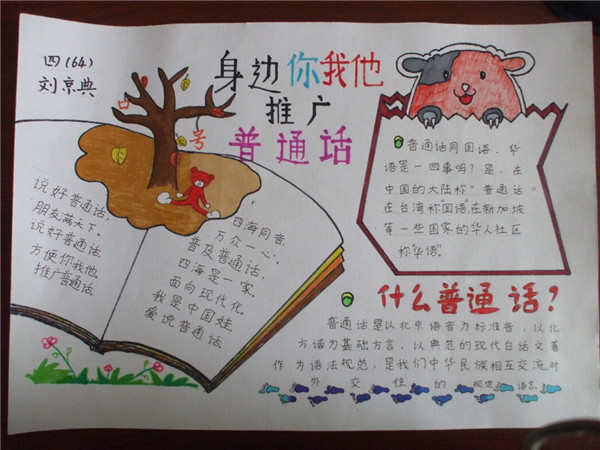 四(64)
刘京典
身边你我他
推广
普通话
说好普通话,
朋友满天下,
说好普通话
方便你我他
推广普通话
四海同音,
万众一心,
普及普通话,
四海是一家,
面向现代化,
我是中国娃,
爱说普通话.
普通话同国语、华
语是一回事吗?是,在
中国的大陆称"普通话"
在台湾称"国语"在新加坡
等一些国家的华人社区
称"华语"
什么普通话?
普通话是以北京语音为标准音,以北
方话为基础方言,以典范的现代白话文著
作为语法规范,是我们中华民族相互交流对
外交往的规范语言